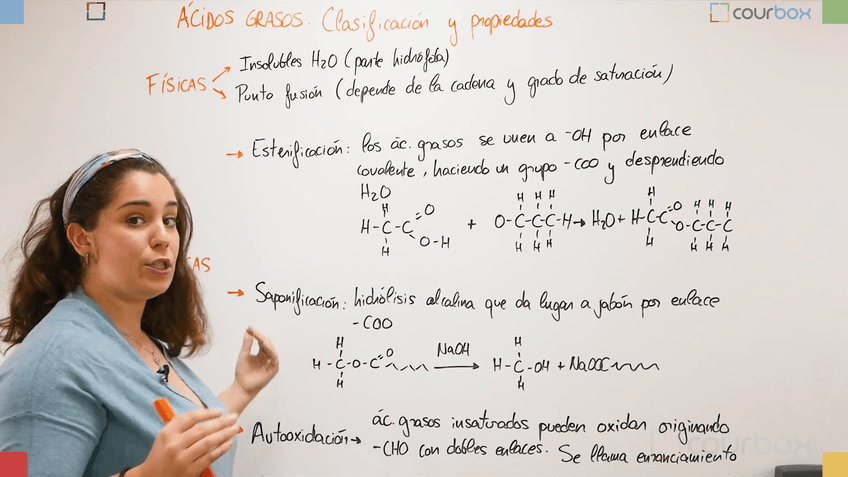 ÁCIDOS GRASOS. Clasificación y propiedades
courbox
FÍSICAS
Insolubles H2O (parte hidrófoba)
Punto fusión (depende de la cadena y grado de saturación)
→ Esterificación: los ác. grasos se unen a -OH por enlace
covalente, haciendo un grupo -COO y desprendiendo
H2O
H H H H H
H-C-C O + O-C-C-C-H → H2O + H-C-C O H H H
O-H O-C-C-C
H H H H H H H H
AS
→ Saponificación: hidrólisis alcalina que da lugar a jabón por enlace
-COO
H H
H-C-O-C O NaOH → H-C-OH + NaOOC
H H
Autooxidación → ác. grasos insaturados pueden oxidar originando
-CHO con dobles enlaces. Se llama enranciamiento
courbox